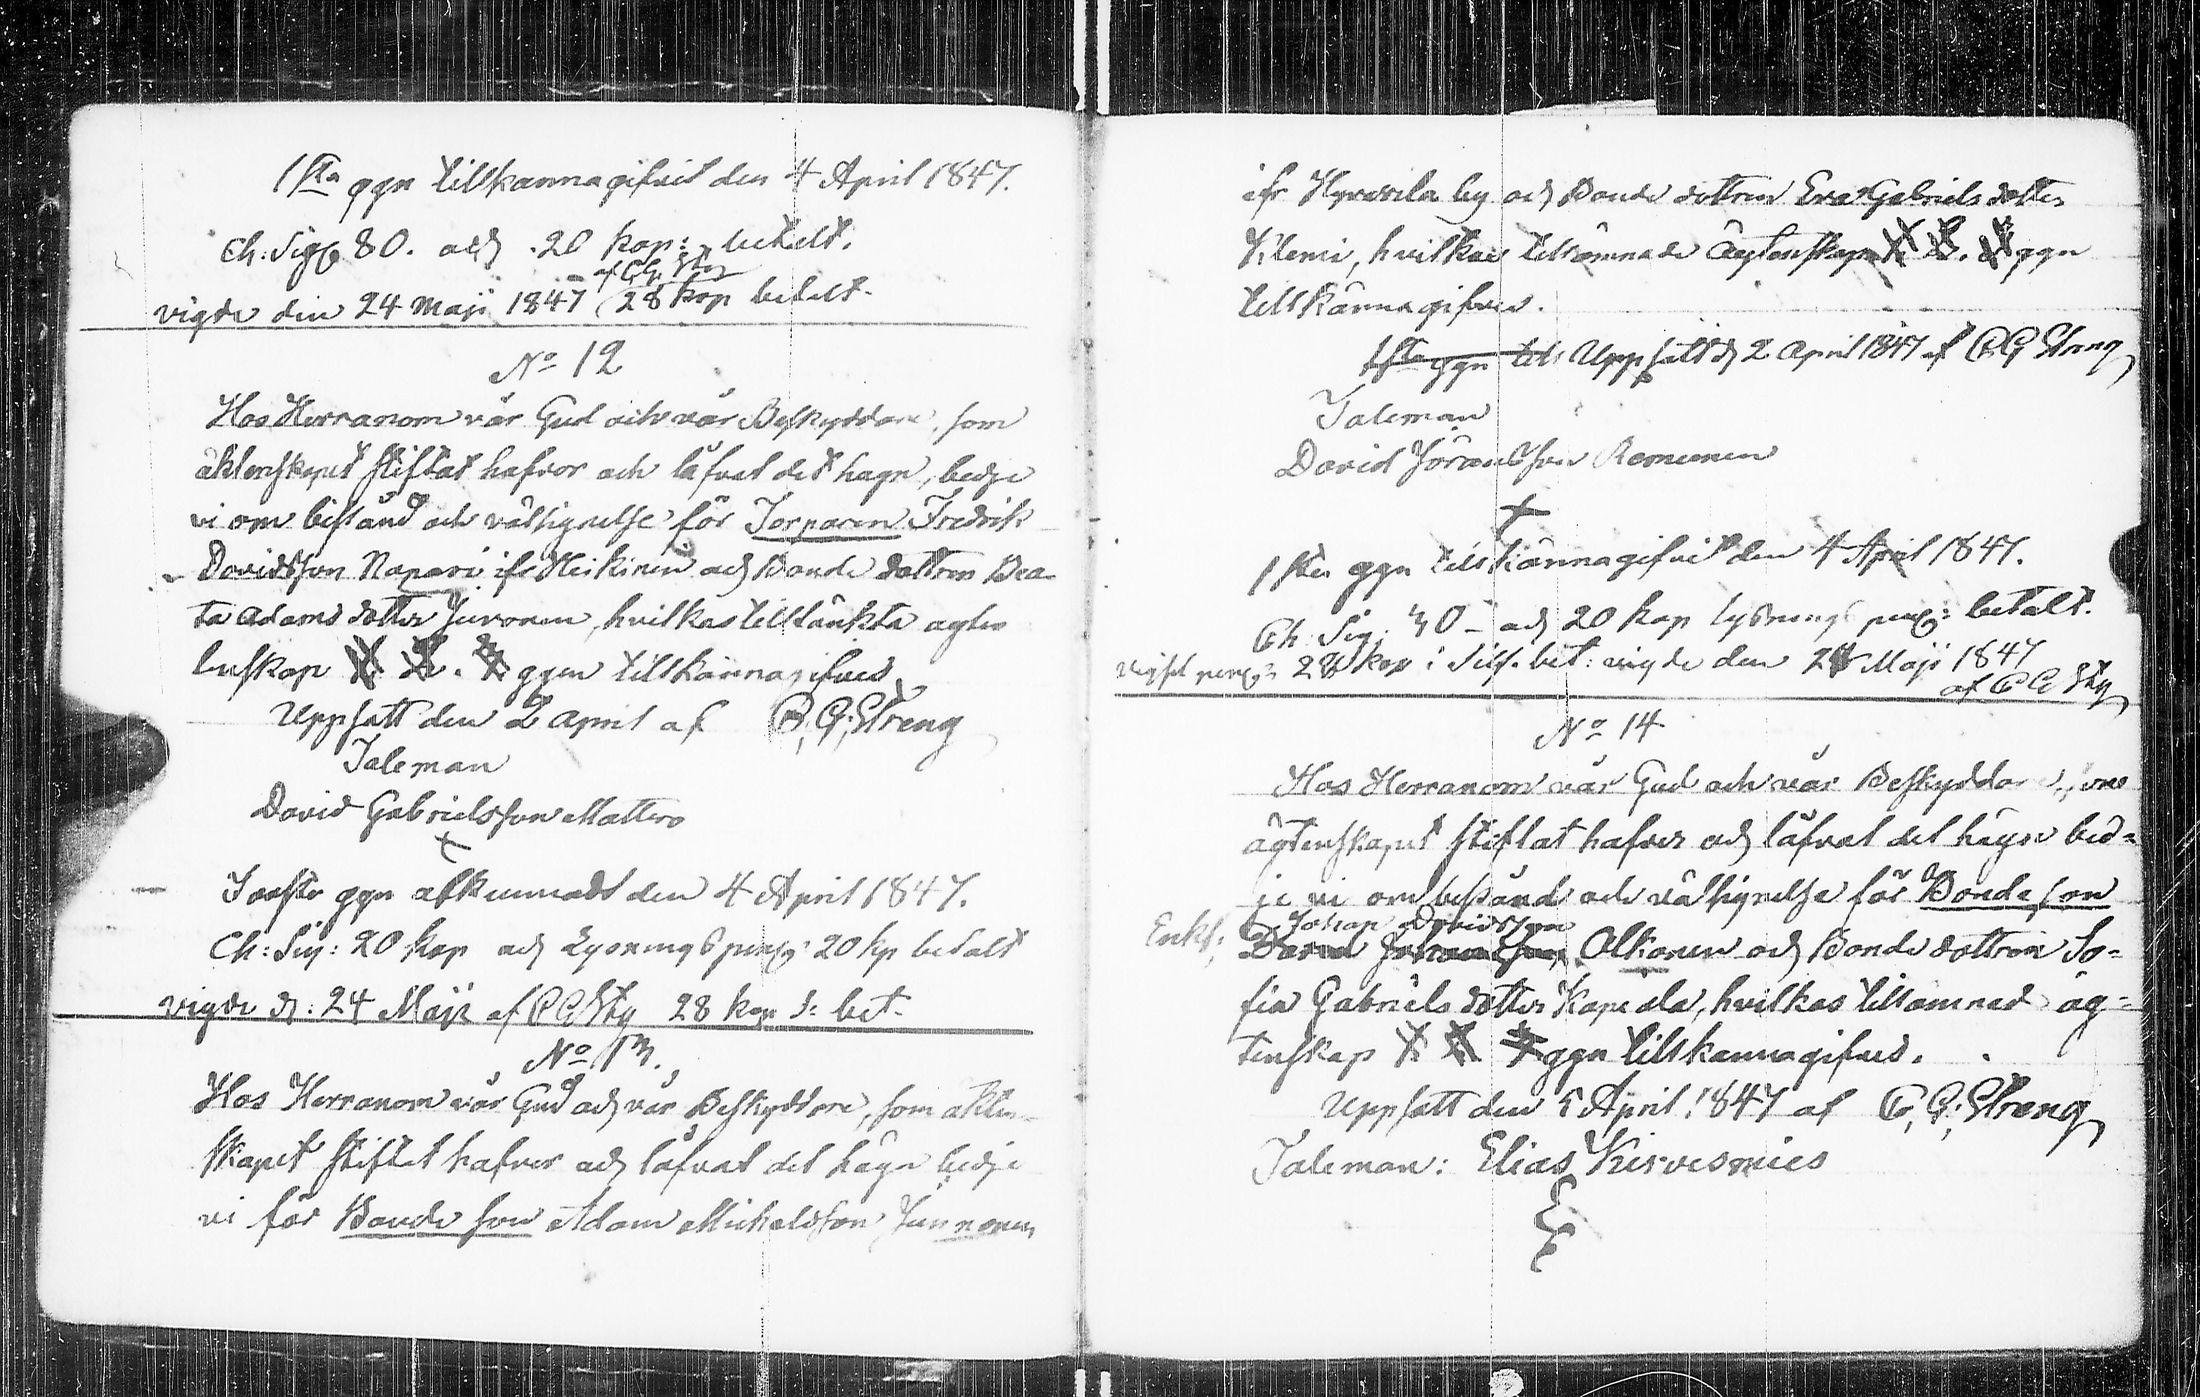 1sta ggn tillkannagifvit den 4 April 1847.
Ch: Sig 80. och 20 kop: betalt.
af CG Stg
vigde den 24 Maji 1847 (28 kop betalt.
No 12
Hos Herranom vår Gud och vår Beskyddare, som
äktenskapet stiftat hafver och låfvat det hägn, bedje
vi om bistånd och välsignelse för Torparen Fredrik
Davidsson Napari ifr Heikinen och Bonde dottren Bea-
ta Adams dotter Juvonen, hvilkas tilltänkta agten
lnskap 1. 2. 3 ggn tillkännagifves
Uppsatt den 2 April af C. G. Streng
Taleman
David Gabrielsson Mattero
+
Första ggn afkunnadt den 4 April 1847.
Ch: Sig: 20 kop och Lysnings peng: 20 kp betalt
vigde d: 24 Maji af C G Stg 28 kop S: bet.
No 13.
Hos Herranom vår Gud och vår Beskyddare, som äkten-
skapet stiftat hafver och låfvat det hägn bedje
vi för Bonde son Adam Mickelsson
by och Bonde dottren Eva Gabriels dotter
Klemi, hvilkas tillämnade Ägtenskap 1. 2. 3 ggn
tillkännagifves.
1sta ggn till Uppsatt d 2 April 1847 af C. G Streng
Taleman
David Göransson Romunen
+
1sta ggn tillkännagifvit den 4 April 1847.
Ch: Sig: 30 - och 20 kop lysnings peng: betalt.
vigsel peng: 28 kop i Silf. bet: vigde den 24 Maji 1847
af C G Stg
No 14
Hos Herranom vår Gud och vår Beskyddare, som
ägtenskapet stiftat hafver och låfvat det hägn bed=
je vi om bistånd och välsignelse för Bonde son
Enkl: Johan Davidsson
David Johansson, Olkonen och Bonde dottren So=
fia Gabriels dotter Kapeala, hvilkas tillämnad äg=
tenskap 1. 2. 3 ggn tillkannagifves.
Uppsatt den 5 April 1847 af C, G; Streng
Taleman: Elias Kirvesmies